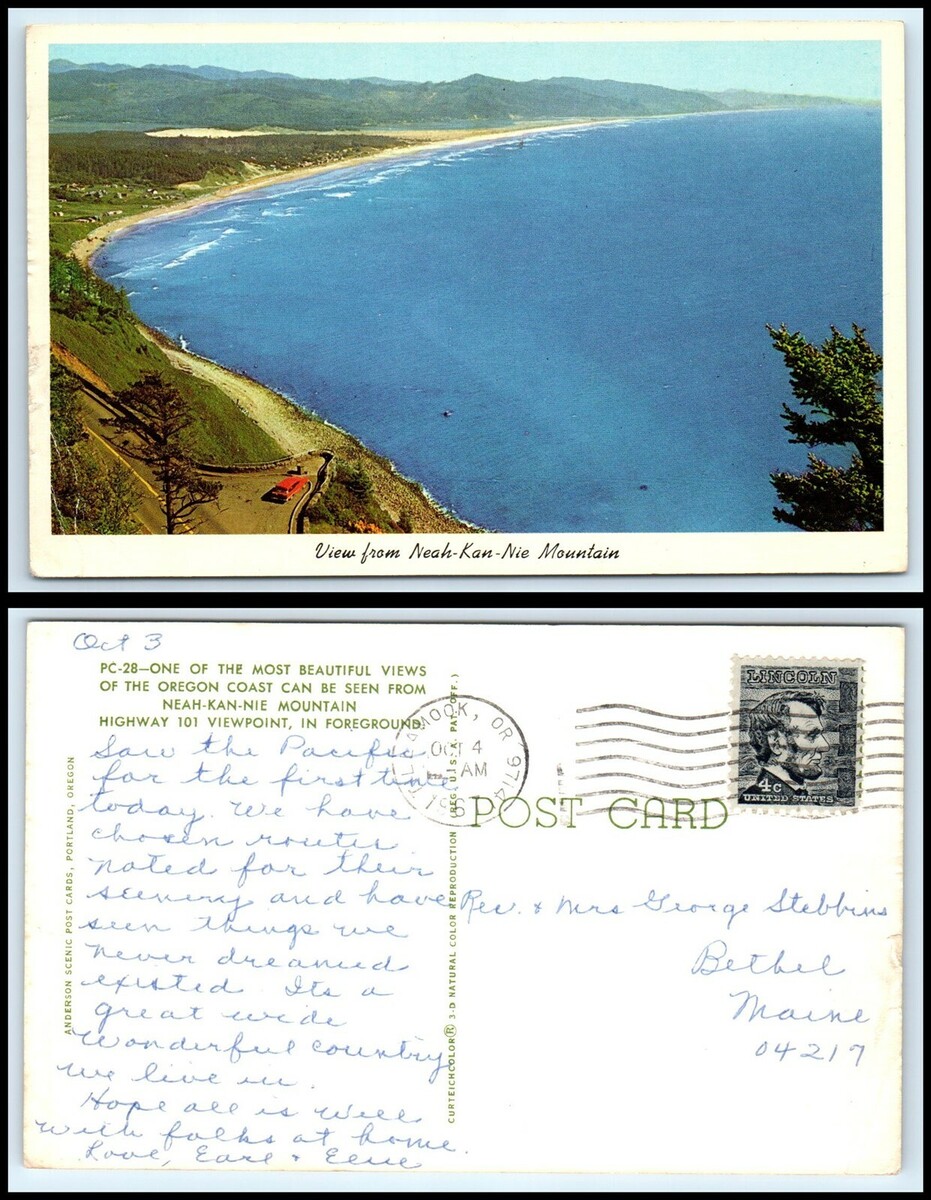 View from Neah-Kan-Nie Mountain
Oct 3
PC-28—ONE OF THE MOST BEAUTIFUL VIEWS
OF THE OREGON COAST CAN BE SEEN FROM
NEAH-KAN-NIE MOUNTAIN
HIGHWAY 101 VIEWPOINT, IN FOREGROUND.
Saw the Pacific
for the first time
today. We have
chosen routes
noted for their
scenery and have
seen things we
never dreamed
existed. Its a
great wide
wonderful country
we live in.
Hope all is well
with folks at home.
Love, Earl +
ANDERSON SCENIC POST CARDS, PORTLAND, OREGON
CURTEICHCOLOR® 3-D NATURAL COLOR REPRODUCTION (REG. U.S.A. PAT. OFF.)
OR 9714
OCT 4
AM
LINCOLN
4c
UNITED STATES
POST CARD
Rev. & Mrs George Stebbins
Bethel
Maine
04217